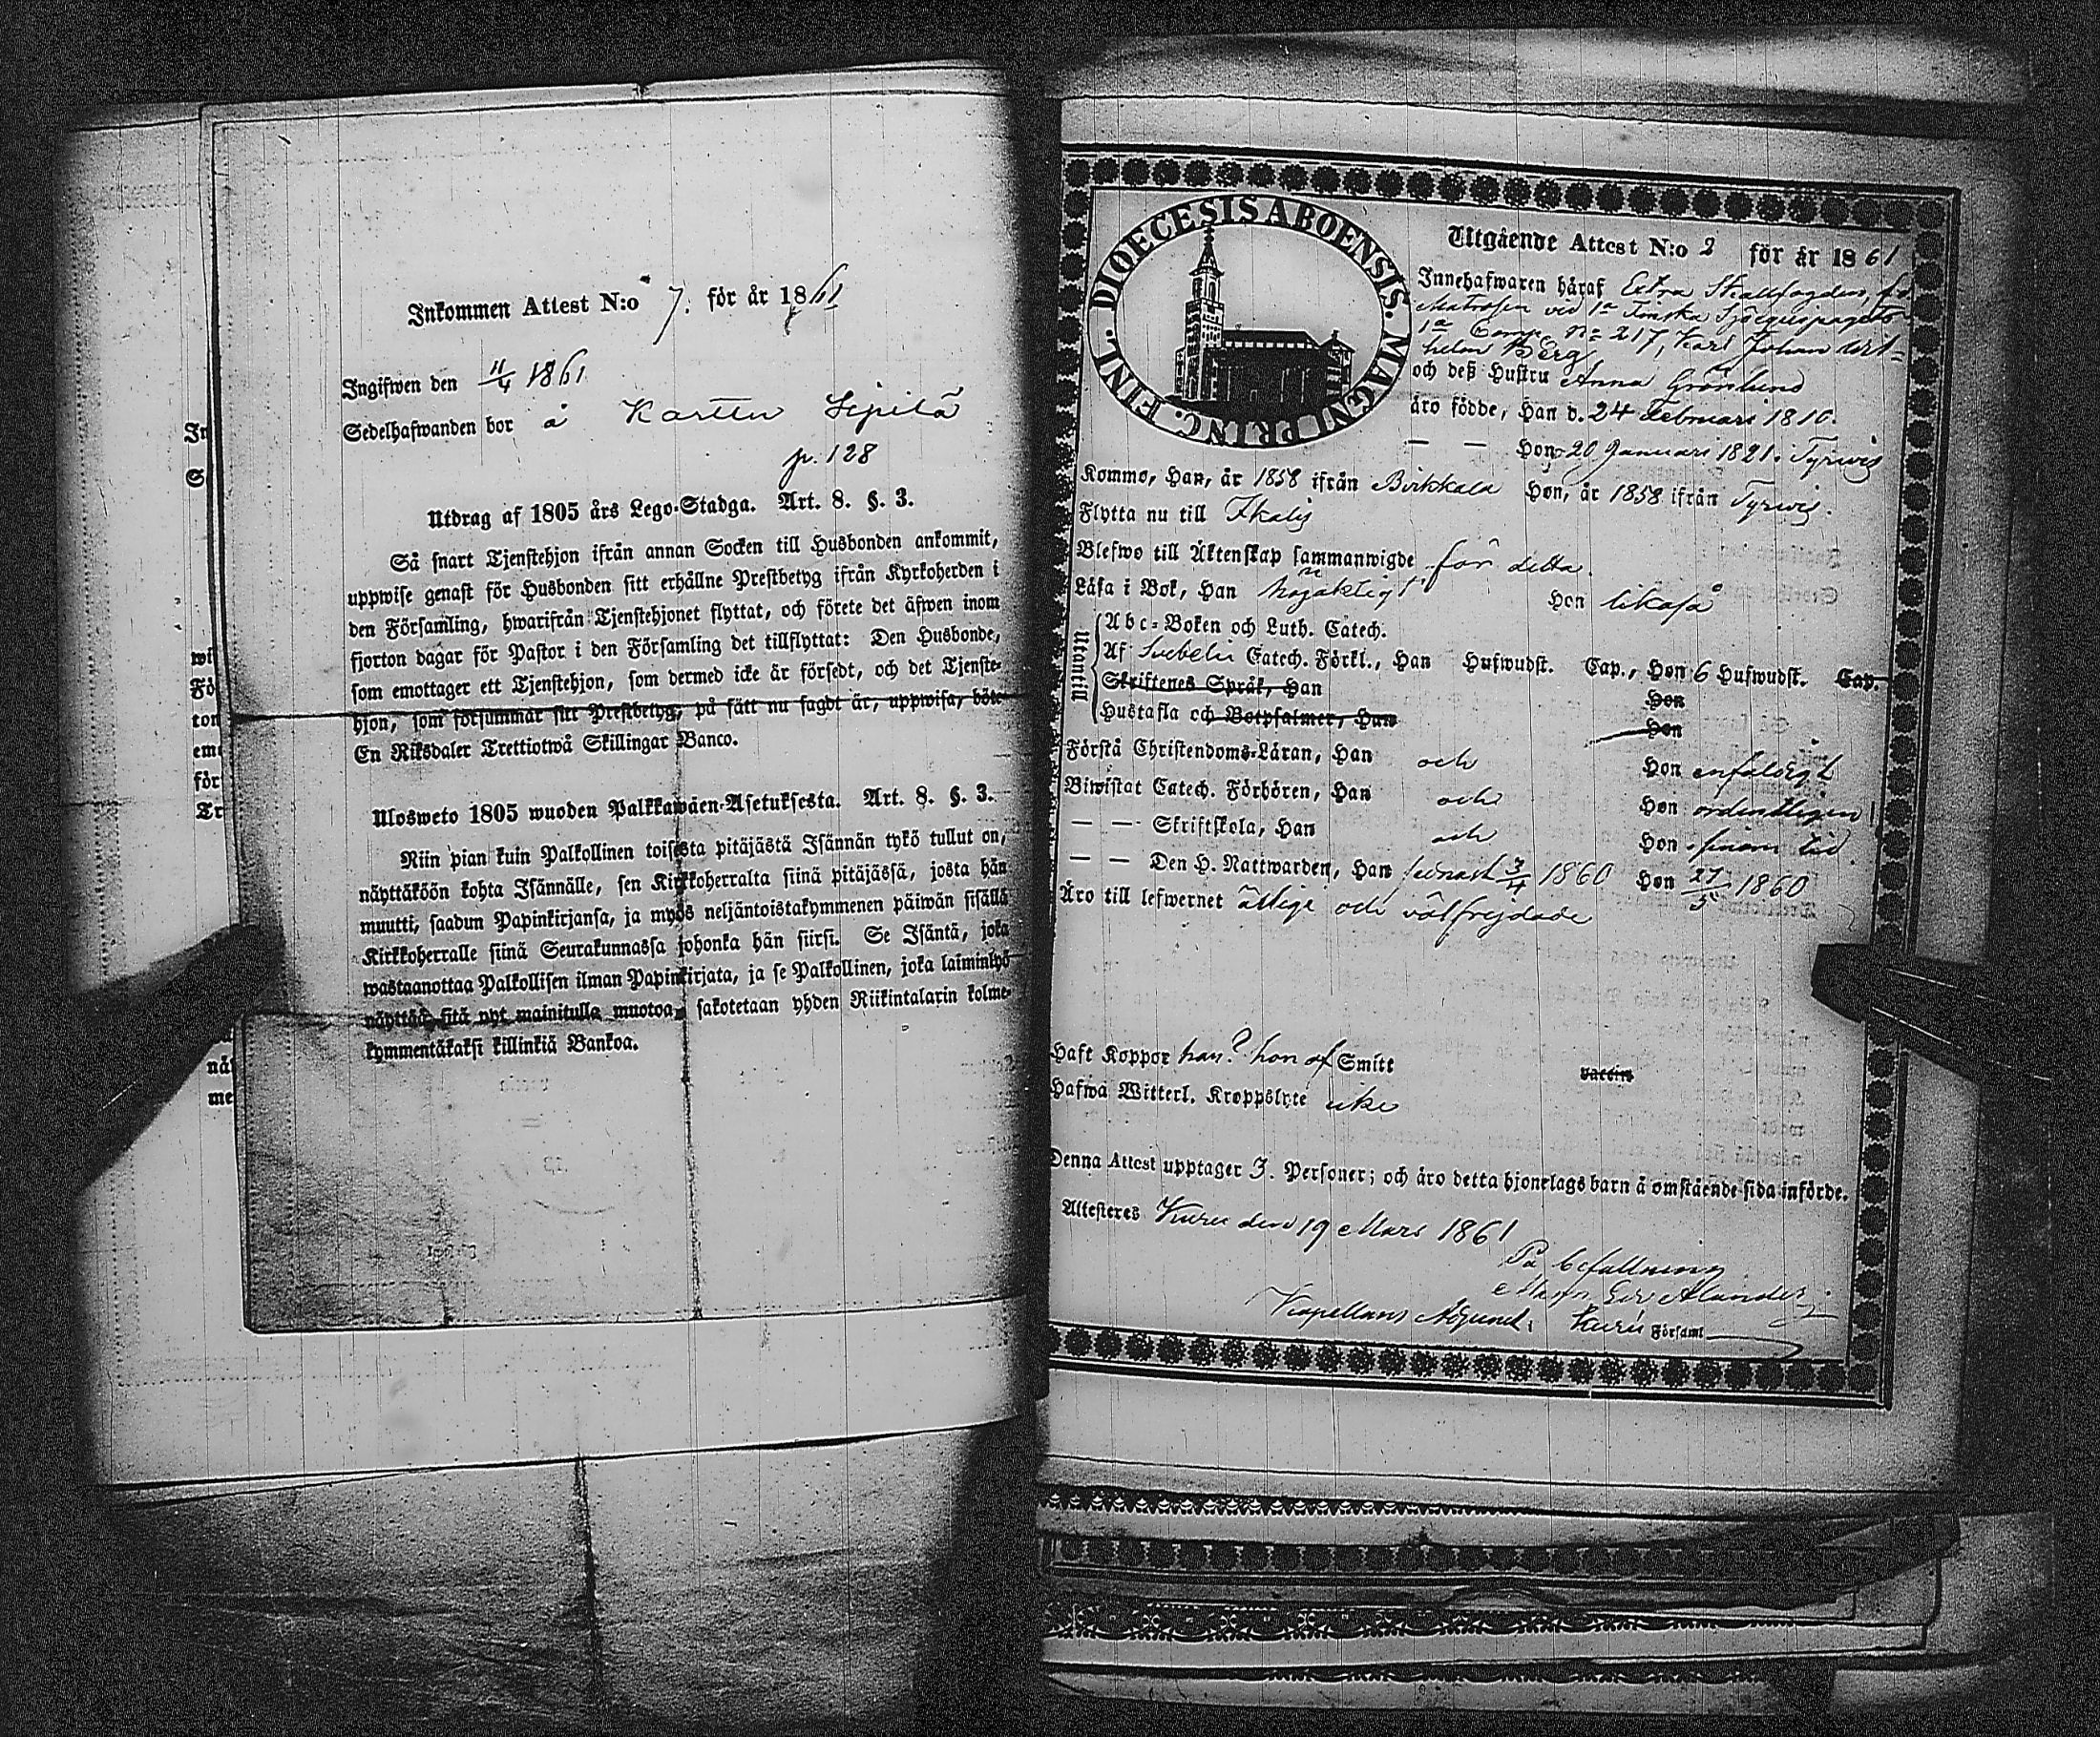 Inkommen Attest N:o 7. för år 1861
Ingifwen den 11/4 1861
Sedelhafwanden bor å Karttu Sipilä
p. 128
Utdrag af 1805 års Lego-Stadga. Art. 8. §. 3.
Så snart Tjenstehjon ifrån annan Socken till Husbonden ankommit,
uppwise genast för Husbonden sitt erhållne Prestbetyg ifrån Kyrkoherden i
den Församling, hwarifrån Tjenstehjonet flyttat, och förete det äfwen inom
fjorton dagar för Pastor i den Församling det tillflyttat: Den Husbonde,
som emottager ett Tjenstehjon, som dermed icke är försedt, och det Tjenste-
hjon, som försummar sitt Prestbetyg, på sätt nu sagdt är, uppwisa, böte
En Riksdaler Trettiotwå Skillingar Banco.
Ulosweto 1805 wuoden Palkkawäen-Asetuksesta. Art. 8. §. 3.
Niin pian kuin Palkollinen toisesta pitäjästä Isännän tykö tullut on,
näyttäköön kohta Isännälle, sen Kirkkoherralta siinä pitäjässä, josta hän
muutti, saadun Papinkirjansa, ja myös neljäntoistakymmenen päiwän sisällä
Kirkkoherralle siinä Seurakunnassa johonka hän siirsi. Se Isäntä, joka
wastaanottaa Palkollisen ilman Papinkirjata, ja se Palkollinen, joka laiminlyö
näyttää sitä nyt mainitulla muotoa, sakotetaan yhden Riikintalarin kolme-
kymmentäkaksi killinkiä Bankoa.
DIOECESIS ABOENSIS. MAGNI PRINC. FINL.
Utgående Attest N:o 2 för år 1861
Innehafwaren häraf Extra Skallfogden, fd
Matrosen ved 1a Finska Sjöequipagets
1a Comp. No 217, Karl Johan Wil-
helm Berg
och deß Hustru Anna Grönlund
äro födde, Han d. 24 Februari 1810.
— — Hon 20 Januari 1821 i Tyrwis
Kommo, Han, år 1858 ifrån Birkkala Hon, år 1858 ifrån Tyrwis.
Flytta nu till Ikalis
Blefwo till Äktenskap sammanwigde för detta.
Läsa i Bok, Han nöjaktigt Hon likaså
Utantill
Abc-Boken och Luth. Catech.
Af Svebelii Catech. Förkl., Han Hufwudst. Cap., Hon 6 Hufwudst. Cap.
Skriftenes Språk, Han Hon
Hustafla och Botpsalmer, Han Hon
Förstå Christendoms-Läran, Han och Hon enfaldigt
Biwistat Catech. Förhören, Han och Hon ordentligen
— — Skriftskola, Han och Hon i sinom tid.
— — Den H. Nattwarden, Han senast 3/4 1860 Hon 27/5 1860
Äro till lefwernet ärlige och välfrejdade
Haft Koppor han? hon af Smitt vaccin
Hafwa Witterl. Kroppslyte icke
Denna Attest upptager 3. Personer; och äro detta hjonelags barn å omstående sida införde.
Attesteres Kuru den 19 Mars 1861
På befallning
Magn. Gav. Alander
Kapellans Adjunct. i Kuru Församl